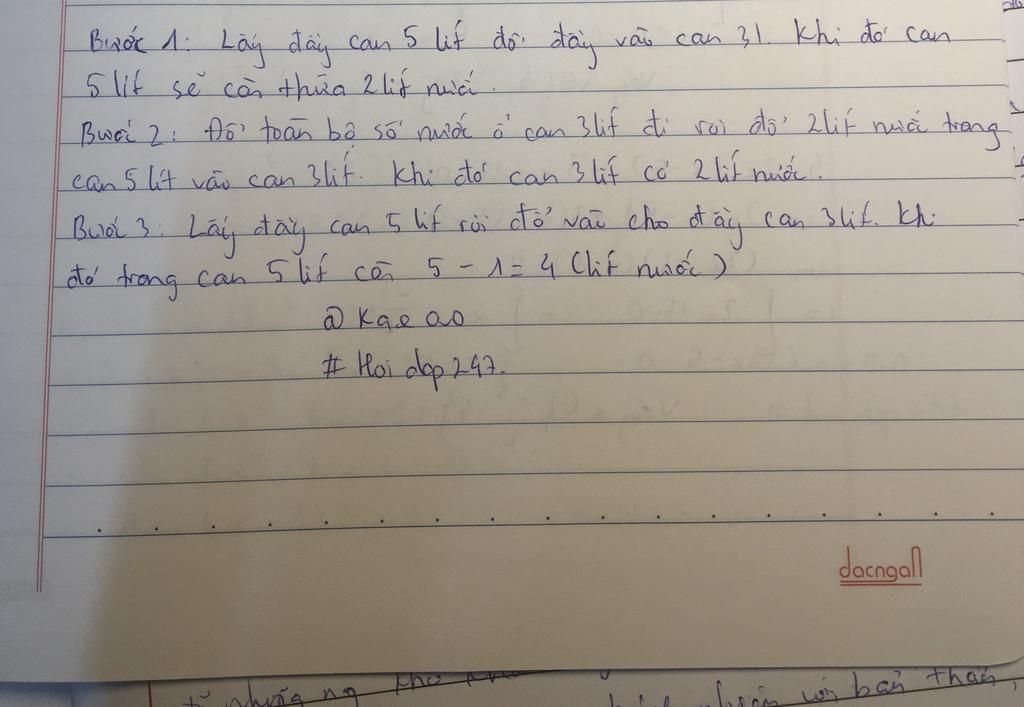 Bước 1: Lấy đầy can 5 lít đổ đầy vào can 3l. Khi đó can
5 lít sẽ còn thừa 2 lít nước.
Bước 2: Đổ toàn bộ số nước ở can 3 lít đi rồi đổ 2 lít nước trong
can 5 lít vào can 3 lít. Khi đó can 3 lít có 2 lít nước.
Bước 3: Lấy đầy can 5 lít rồi đổ vào cho đầy can 3 lít. Khi
đó trong can 5 lít còn 5 - 1 = 4 (lít nước)
@ Kae ao
# Hoi dap 247.
dacngan
những ng
với bản thân,